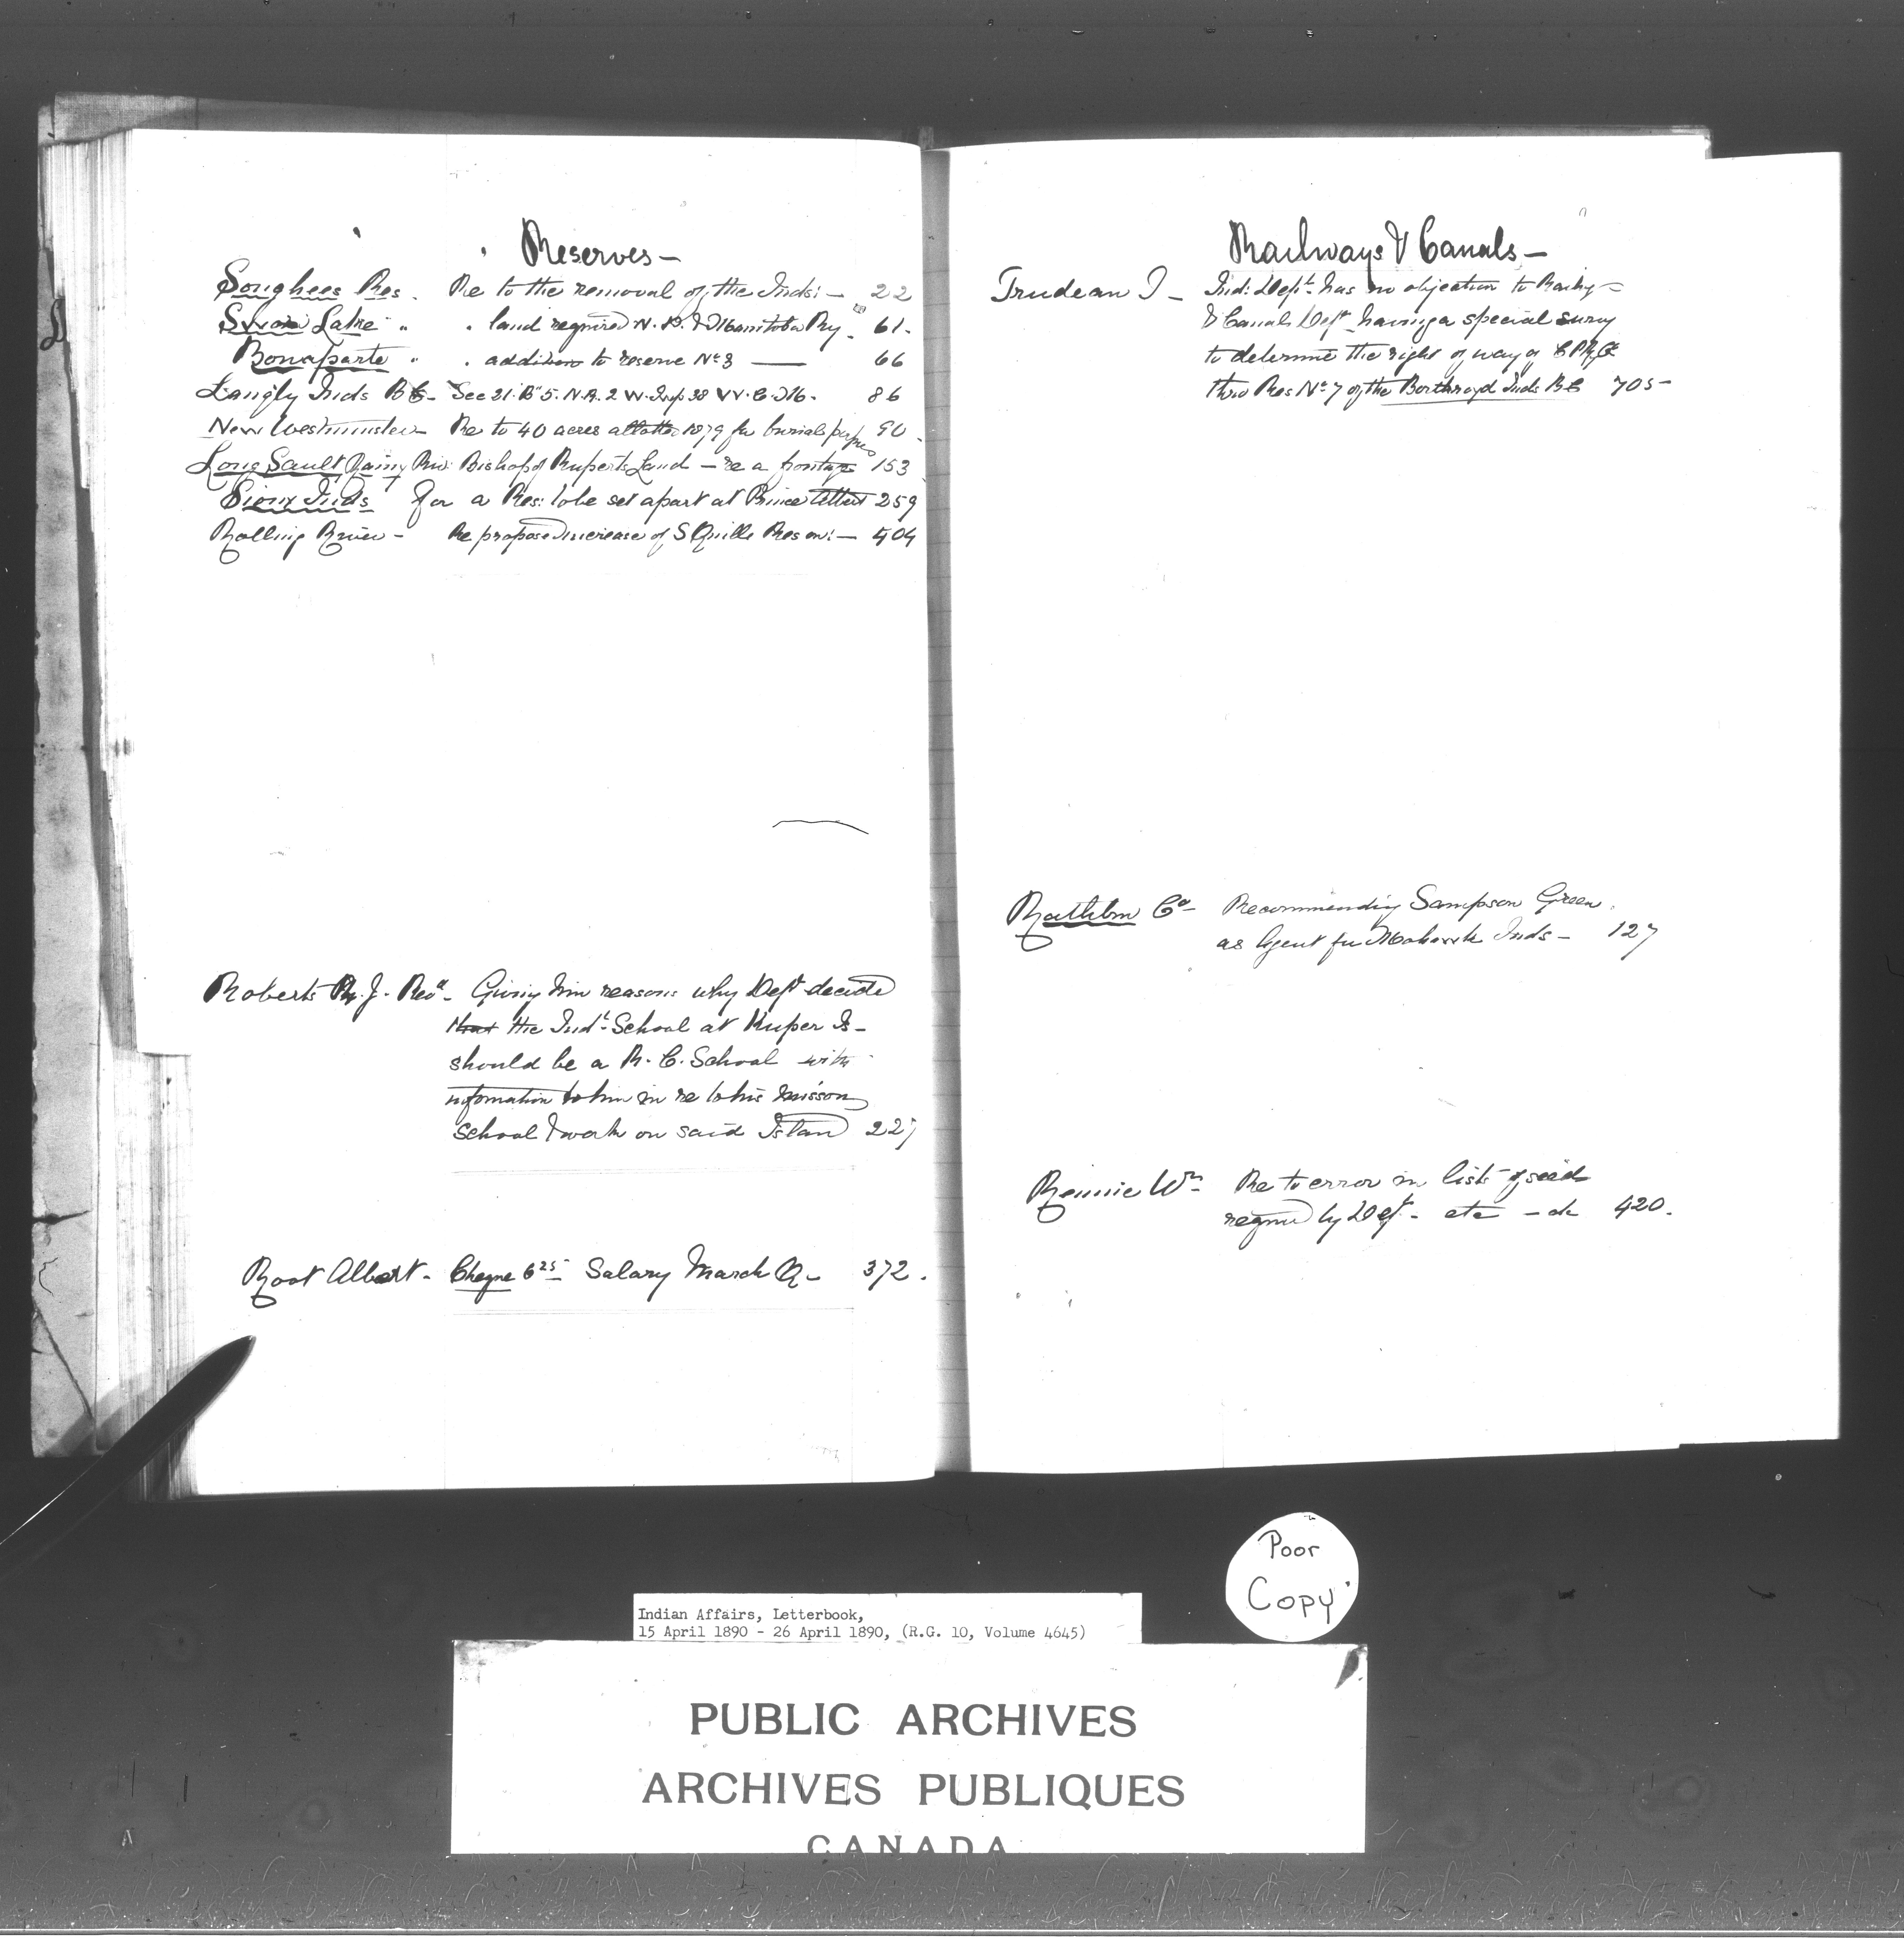 Reserves —
Songhees Res. Re to the removal of the Inds: — 22
Swan Lake " " land required N. P. & Manitoba Ry. 61.
Bonaparte " " addition to reserve No 3 — 66
Langly Inds BC — Sec 21. B 5. N.R. 2 W. Twp 38 W. C. M. 86
New Westminster — Re to 40 acres allotted 1879 for burial purpes 90
Long Sault Rainy Riv: Bishop of Ruperts Land — re a frontage 153
Sioux Inds For a Res: to be set apart at Prince Albert 259
Rolling River — Re proposed increase of S Quills Reserv: — 404
Roberts R. J. Revd — Giving him reasons why Dept decided
that the Indl School at Kuper Is —
should be a R. C. School with
information to him in re to his mission
School & work on said Island 227
Root Albert — Cheque 6 25 Salary March Q — 372.
Railways & Canals —
Trudeau T — Ind: Dept. has no objection to Railwy —
& Canals Dept having a special survy
to determine the right of way of C P Ry Co
thro Res No 7 of the Boothroyd Inds BC 705 —
Rathbun Co — Recommending Sampson Green
as Agent for Mohawk Inds — 127
Rennie Wm — Re to error in list of seeds
required by Dept — etc — 420.
Poor
Copy
Indian Affairs, Letterbook,
15 April 1890 - 26 April 1890, (R.G. 10, Volume 4645)
PUBLIC ARCHIVES
ARCHIVES PUBLIQUES
CANADA